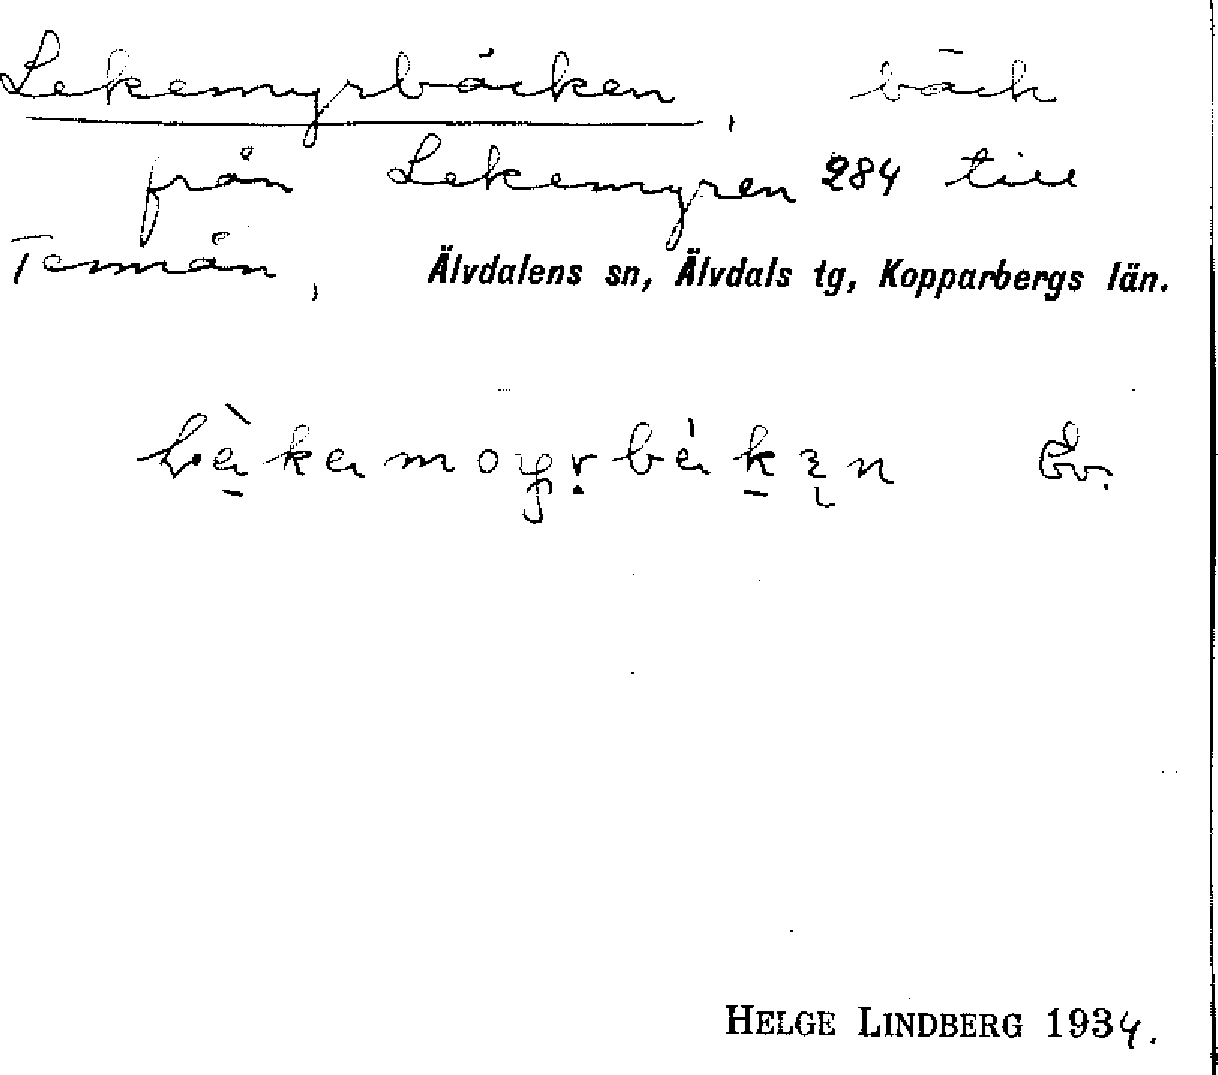 Lekemyrbäcken, bäck
från Lekemyren 284 till
Tennån, Älvdalens sn, Älvdals tg, Kopparbergs län.
Ev.
HELGE LINDBERG 1934.